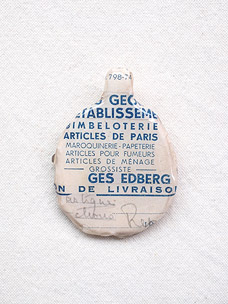 798-74
GEO
ETABLISSEME
IMBELOTERIE
ARTICLES DE PARIS
MAROQUINERIE - PAPETERIE
ARTICLES POUR FUMEURS
ARTICLES DE MÉNAGE
GROSSISTE
GES EDBERG
ON DE LIVRAISO